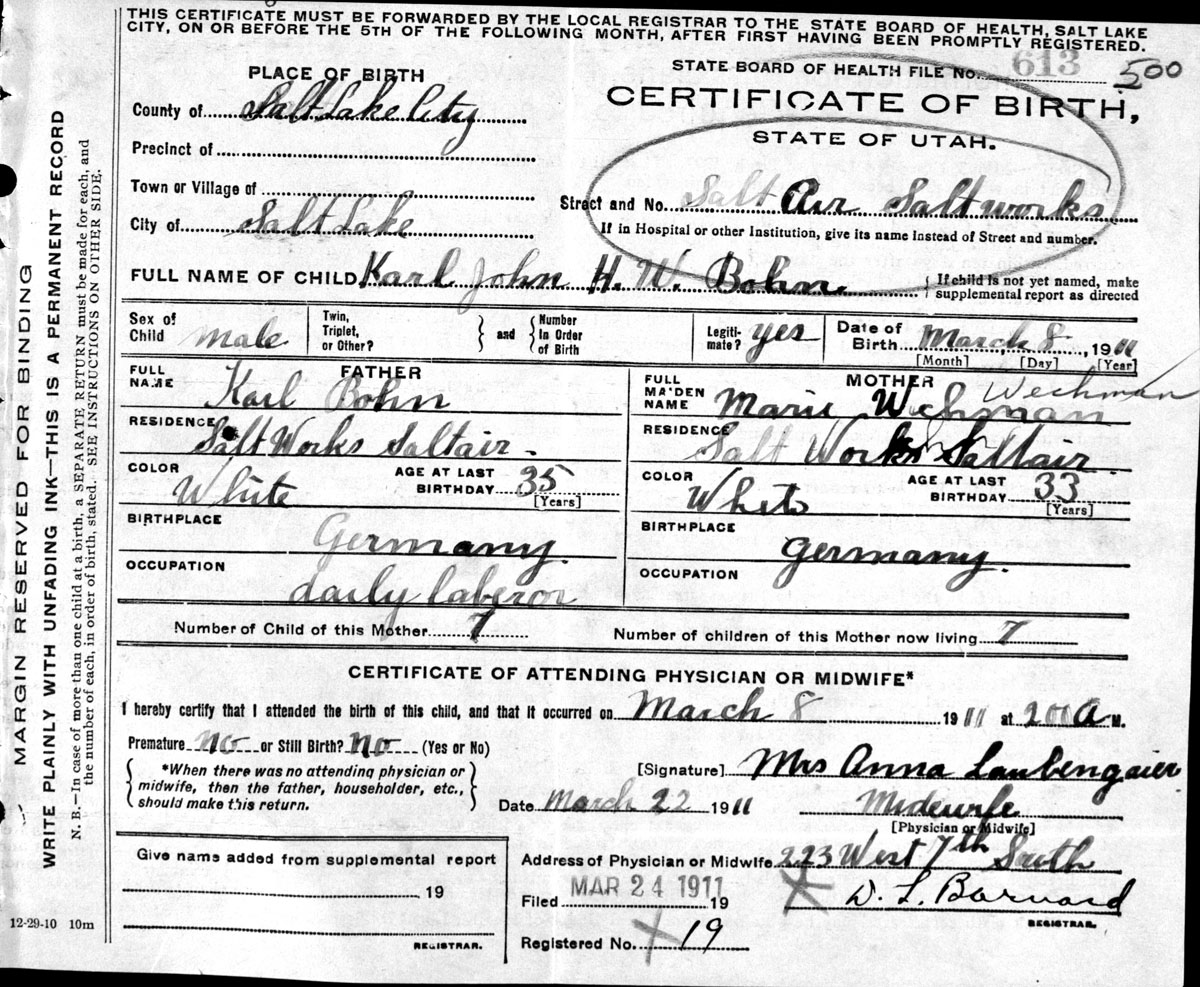 THIS CERTIFICATE MUST BE FORWARDED BY THE LOCAL REGISTRAR TO THE STATE BOARD OF HEALTH, SALT LAKE
CITY, ON OR BEFORE THE 5TH OF THE FOLLOWING MONTH, AFTER FIRST HAVING BEEN PROMPTLY REGISTERED.
MARGIN RESERVED FOR BINDING
WRITE PLAINLY WITH UNFADING INK—THIS IS A PERMANENT RECORD
N. B.—In case of more than one child at a birth, a SEPARATE RETURN must be made for each, and
the number of each, in order of birth, stated. SEE INSTRUCTIONS ON OTHER SIDE.
12-29-10 10m
STATE BOARD OF HEALTH FILE No. 613 500
CERTIFICATE OF BIRTH,
STATE OF UTAH.
PLACE OF BIRTH
County of Salt Lake City
Precinct of
Town or Village of
City of Salt Lake
Street and No. Salt Air Salt works
If in Hospital or other Institution, give its name Instead of Street and number.
FULL NAME OF CHILD Karl John H. W. Bohn.
{ If child is not yet named, make
supplemental report as directed
Sex of Child male
Twin, Triplet, or Other? } and { Number In Order of Birth
Legiti-mate? yes
Date of Birth March 8, 1911
[Month] [Day] [Year]
FATHER
FULL NAME Karl Bohn
RESIDENCE Salt Works Saltair.
COLOR White
AGE AT LAST BIRTHDAY 35
[Years]
BIRTHPLACE Germany.
OCCUPATION daily laberor
MOTHER
FULL MAIDEN NAME Marie Wechman Wechman
RESIDENCE Salt Works Saltair.
COLOR White
AGE AT LAST BIRTHDAY 33
[Years]
BIRTHPLACE Germany.
OCCUPATION
Number of Child of this Mother 7
Number of children of this Mother now living 7
CERTIFICATE OF ATTENDING PHYSICIAN OR MIDWIFE*
I hereby certify that I attended the birth of this child, and that it occurred on March 8 1911 at 200 A M.
Premature no or Still Birth? no (Yes or No)
{ *When there was no attending physician or
midwife, then the father, householder, etc.,
should make this return. }
[Signature] Mrs Anna Laubengaier
Date March 22 1911
Midewife
[Physician or Midwife]
Address of Physician or Midwife 223 West 7th South
Give name added from supplemental report
19
REGISTRAR.
Filed MAR 24 1911 19
D. L. Barnard
REGISTRAR.
Registered No. 19